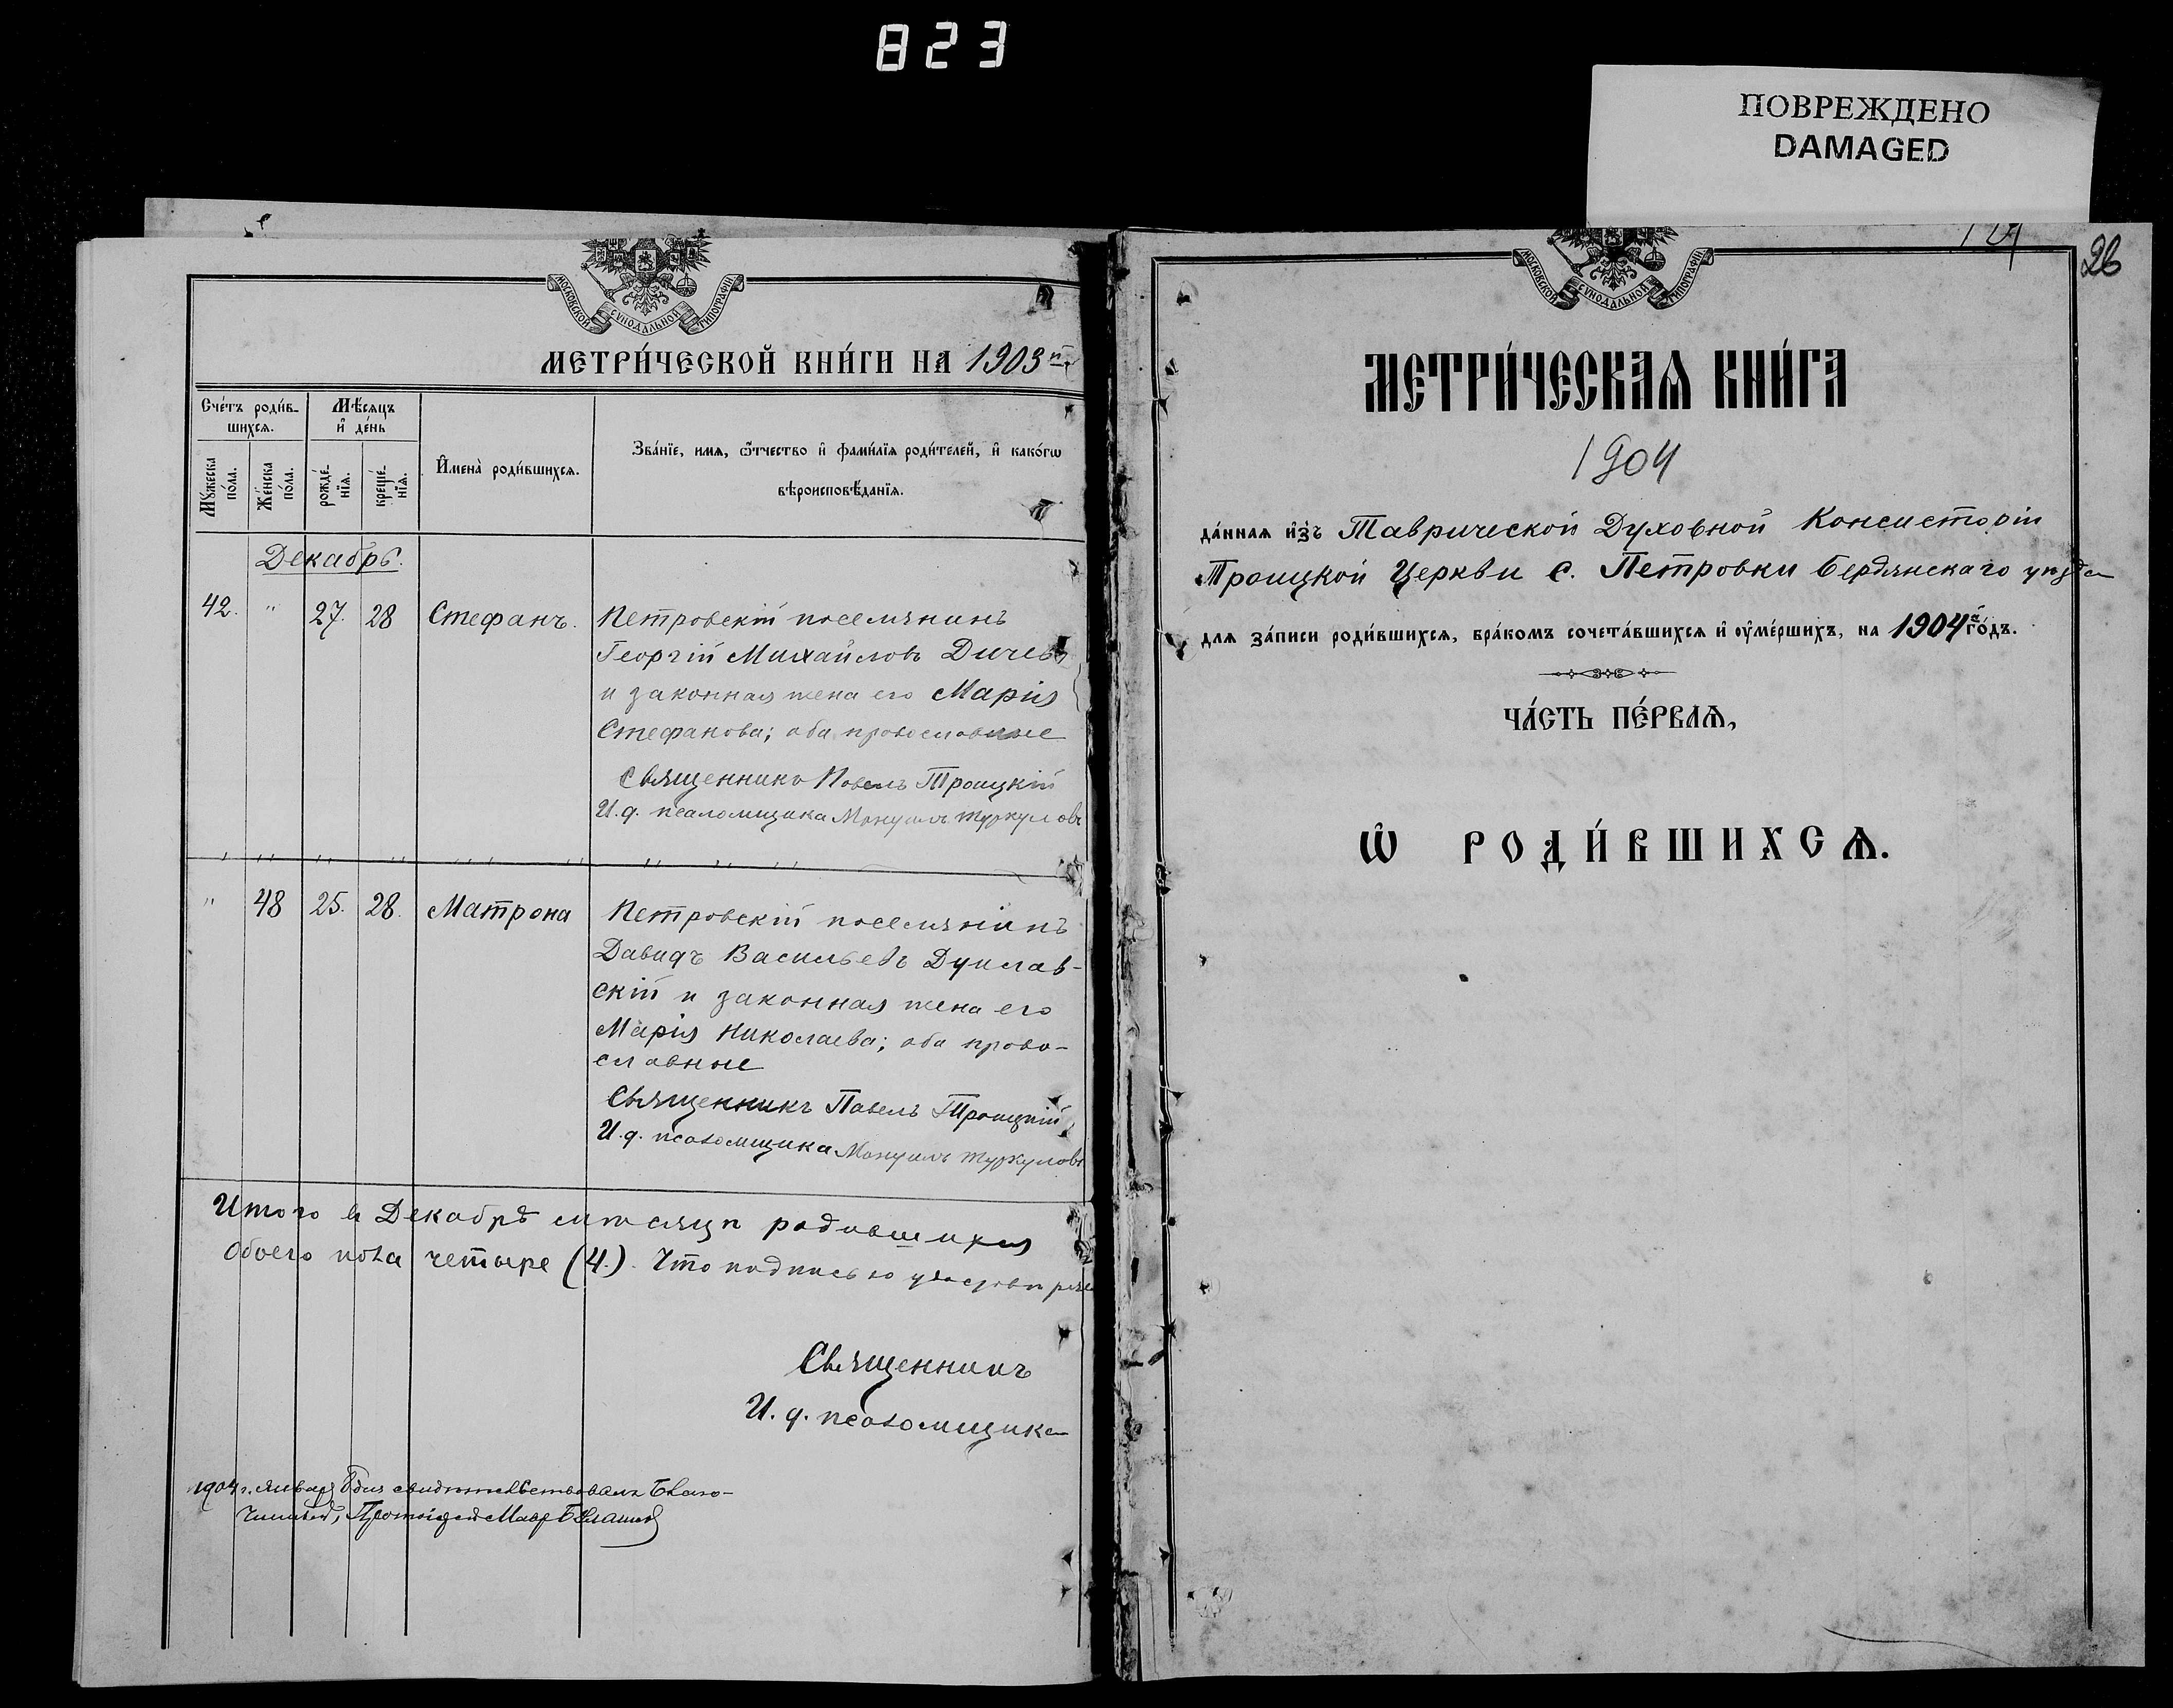 823
ПОВРЕЖДЕНО
DAMAGED
МОСКОВСКОЙ СѴНОДАЛЬНОЙ ТИПОГРАФІИ
МЕТРИ́ЧЕСКОЙ КНИ́ГИ НА 1903
Сче́тъ роди́в-
шихсѧ.
Мѣ́сѧцъ
и҆ де́нь
Мꙋ́жеска
по́ла.
Же́нска
по́ла.
рожде́-
нїѧ.
креще́-
нїѧ.
И҆мена̀ роди́вшихсѧ.
Зва́нїе, имѧ, ѻ҆́тчество и҆ фами́лїѧ роди́телей, и҆ како́гѡ
вѣроисповѣ́данїѧ.
Декабрь.
42. " 27. 28 Стефанъ. Петровскій поселянинъ
Георгій Михайловъ Дичевъ
и законная жена его Марія
Стефанова; оба православные
Священникъ Павелъ Троицкій
И. д. псаломщика Мануилъ Туркуловъ
" 48 25. 28. Матрона Петровскій поселянинъ
Давидъ Васильевъ Дуплав-
скій и законная жена его
Марія Николаева; оба право-
славные
Священникъ Павелъ Троицкій
И. д. псаломщика Мануилъ Туркуловъ
Итого въ Декабрѣ мѣсяцѣ родившихся
обоего пола четыре (4.). Что подписью удостовѣряе
Священникъ
И. д. псаломщика
1904 г. Января дня свидѣтельствовалъ Благо-
чинный, Протоіерей
26
МОСКОВСКОЙ СѴНОДАЛЬНОЙ ТИПОГРАФІИ
МЕТРИ́ЧЕСКАѦ КНИ́ГА
1904
да́ннаѧ и҆зъ Таврической Духовной Консисторіи
Троицкой Церкви с. Петровки Бердянскаго уѣзда
длѧ за́писи роди́вшихсѧ, бра́комъ сочета́вшихсѧ и҆ ᲂу҆ме́ршихъ, на 1904й го́дъ.
ЧА́СТЬ ПЕ́РВАѦ,
Ѡ҆ РОДИ́ВШИХСѦ.